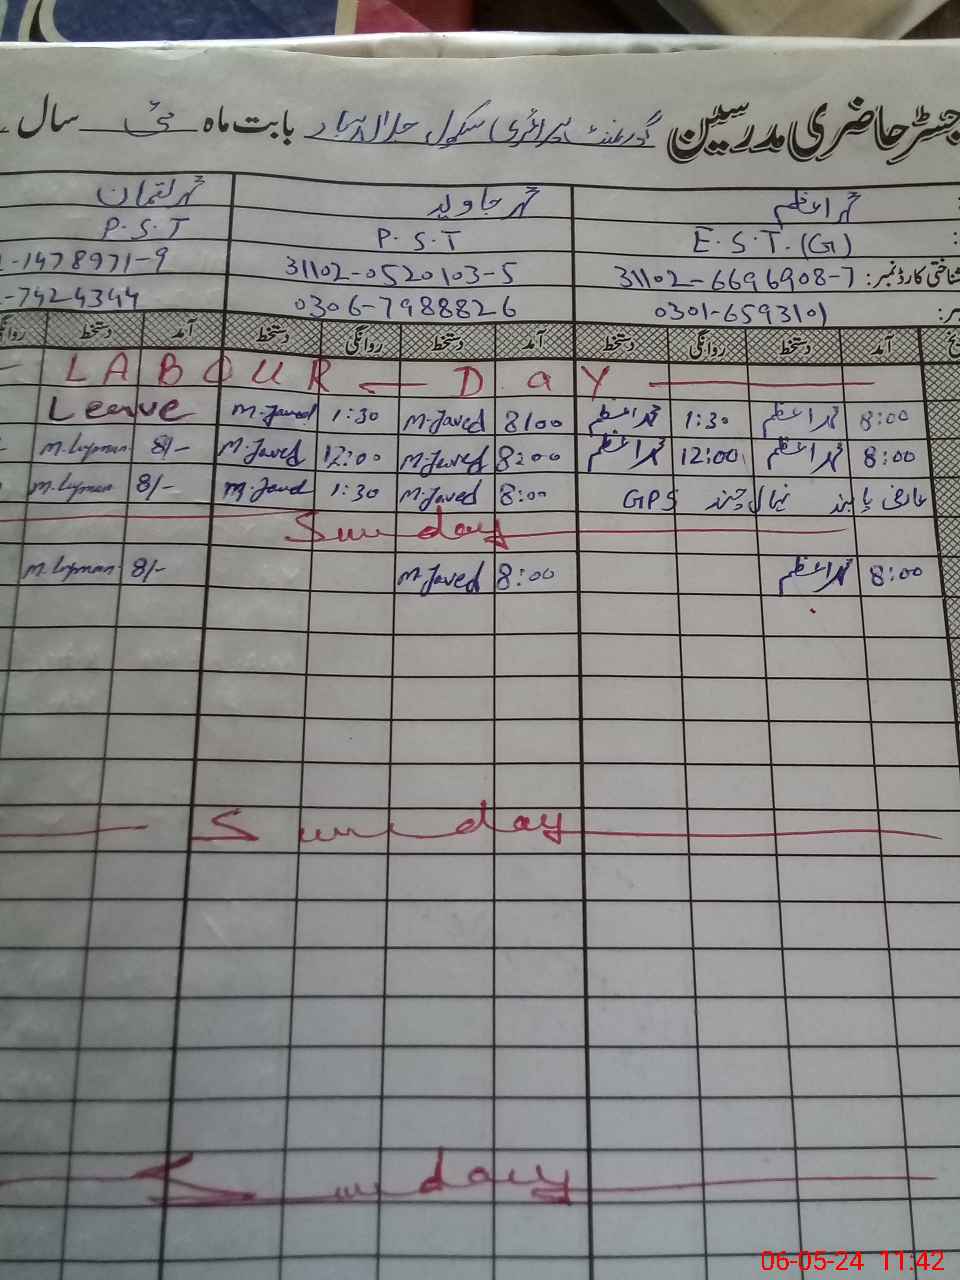 رجسٹر حاضری مدرسین گورنمنٹ پرائمری سکول جلال آباد بابت ماہ مئی سال
محمد اعظم محمد جاوید محمد لقمان
E.S.T.(G) P.S.T P.S.T
شناختی کارڈ نمبر: 31102-6696908-7 31102-0520103-5 -1478971-9
0301-6593101 0306-7988826 -7424344
آمد دستخط روانگی دستخط آمد دستخط روانگی دستخط آمد دستخط
LABOUR DAY
8:00 محمد اعظم 1:30 محمد اعظم 8/00 M.Javed 1:30 M.Javed Leave
8:00 محمد اعظم 12:00 محمد اعظم 8:00 M.Javed 12:00 M.Javed 8/- M.luqman
8:00 M.Javed 1:30 M.Javed 8/- M.luqman GPS
Sunday
8:00 محمد اعظم 8:00 M.Javed 8/- M.luqman
Sunday
Sunday
06-05-24 11:42